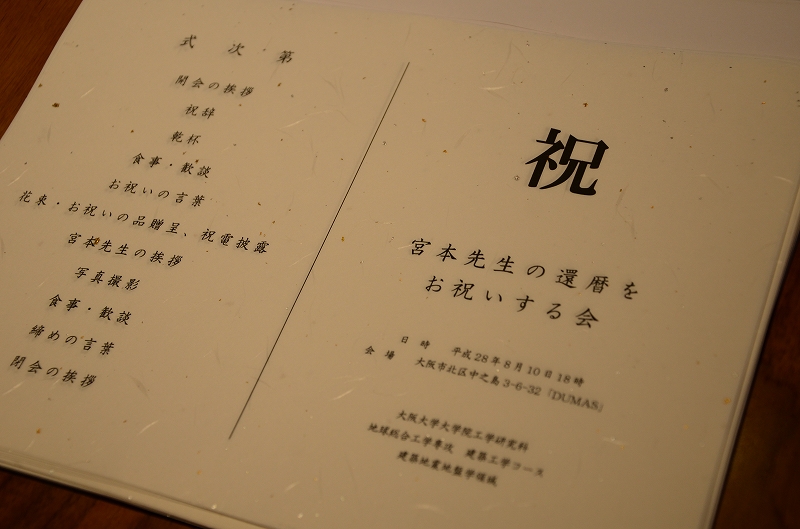 式次第
開会の挨拶
祝辞
乾杯
食事・歓談
お祝いの言葉
花束・お祝いの品贈呈、祝電披露
宮本先生の挨拶
写真撮影
食事・歓談
締めの言葉
閉会の挨拶
祝
宮本先生の還暦を
お祝いする会
日 時 平成28年8月10日18時
会 場 大阪市北区中之島3-6-32「DUMAS」
大阪大学大学院工学研究科
地球総合工学専攻 建築工学コース
建築地震地盤学領域